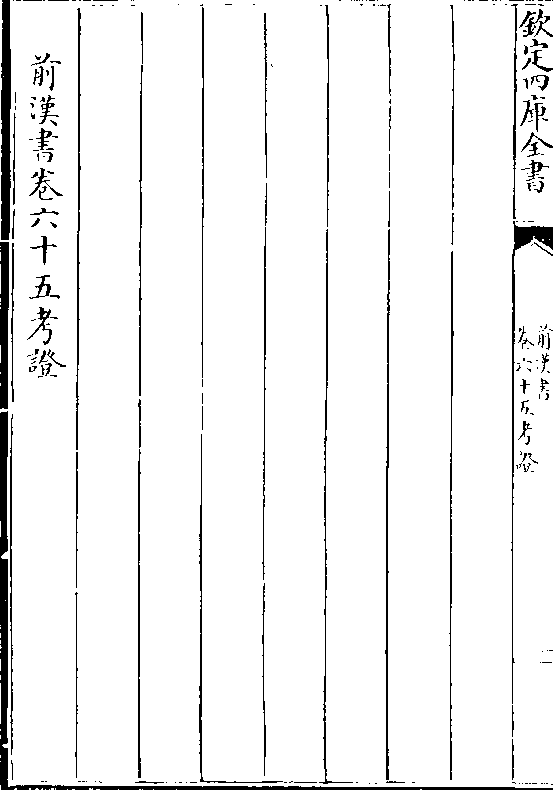 欽定四庫全書
前漢書
卷六十五考證
二
前漢書卷六十五考證